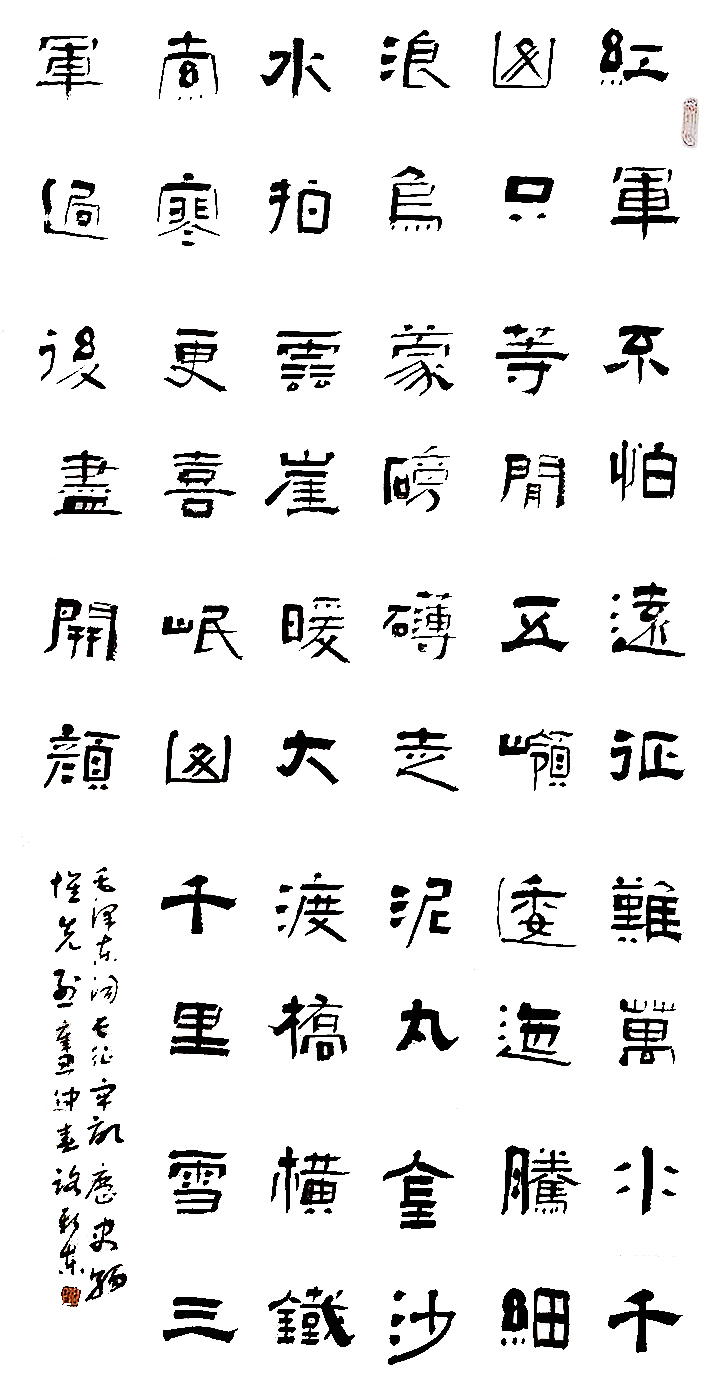 紅軍不怕遠征難萬水千
山只等閒五嶺逶迤騰細
浪烏蒙磅礴走泥丸金沙
水拍雲崖暖大渡橋橫鐵
索寒更喜岷山千里雪三
軍過後盡開顏
毛泽东词长征牢記歷史緬
怀先烈仲春